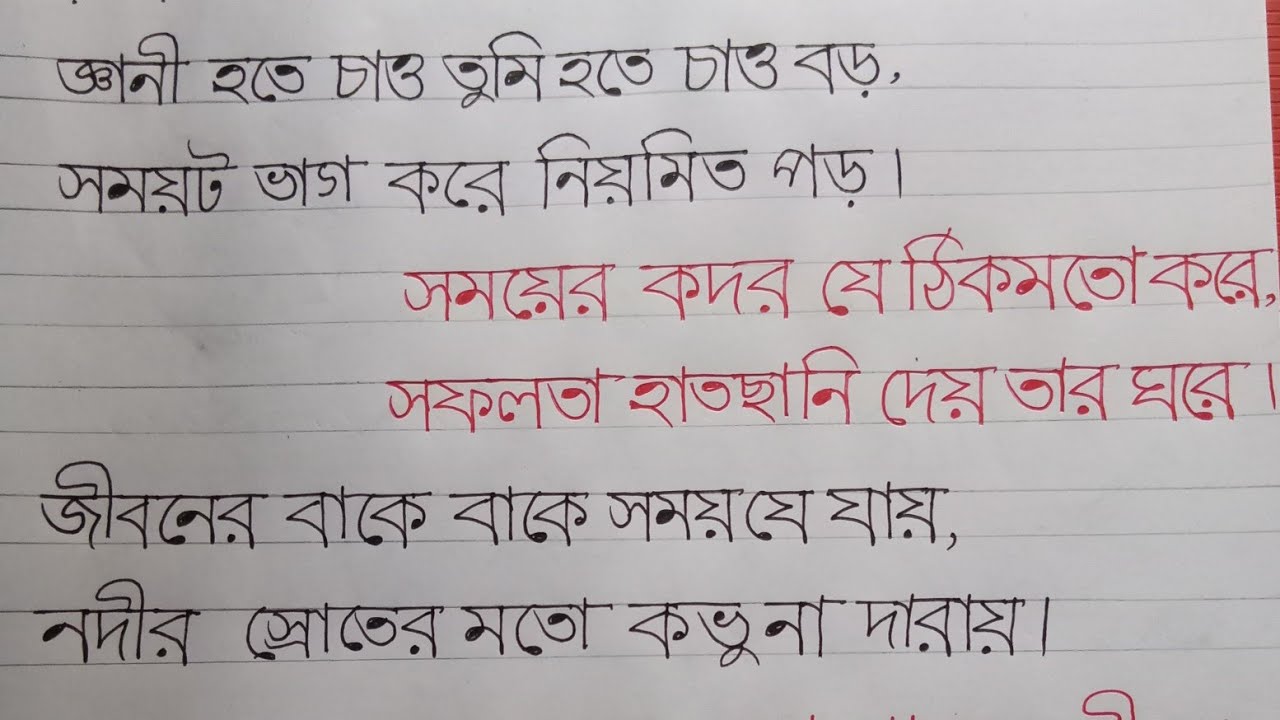 জ্ঞানী হতে চাও তুমি হতে চাও বড়,
সময়ট ভাগ করে নিয়মিত পড়।
সময়ের কদর যে ঠিকমতো করে,
সফলতা হাতছানি দেয় তার ঘরে।
জীবনের বাকে বাকে সময় যে যায়,
নদীর স্রোতের মতো কভু না দারায়।